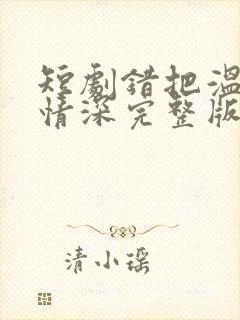 短劇錯把溫
情深完整版
清小瑶